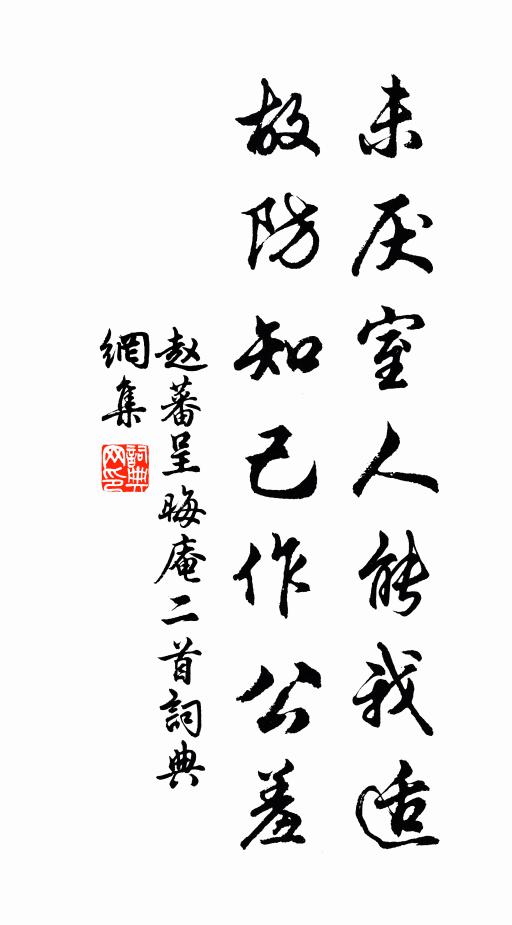 未厌室人能我适
故防知己作公羞
赵蕃呈晦庵二首詞典
網集
詞典
网印